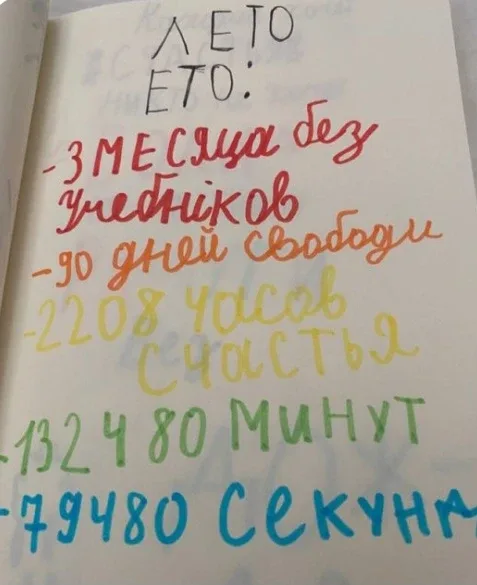 ЛЕТО
ЕТО:
-3 МЕСЯЦа без
учебніков
-90 дней свободи
-2208 часов
СЧАСТЬЯ
-132480 МИНУТ
-79480 СЕКУНД